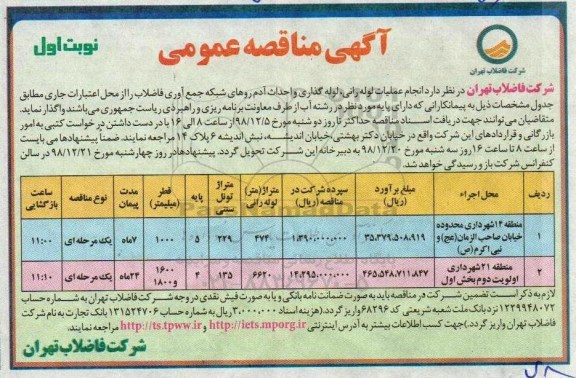 آگهی مناقصه عمومی
نوبت اول
شرکت فاضلاب تهران
شرکت فاضلاب تهران در نظر دارد انجام عملیات لوله رانی، لوله گذاری و احداث آدم روهای شبکه جمع آوری فاضلاب را از محل اعتبارات جاری مطابق
جدول مشخصات ذیل به پیمانکارانی که دارای پایه مورد نظر در رشته آب از طرف معاونت برنامه ریزی و راهبردی ریاست جمهوری می باشند واگذار نماید.
متقاضیان می توانند جهت دریافت اسناد مناقصه حداکثر تا روز دو شنبه مورخ ۹۸/۱۲/۵ از ساعت ۸ الی ۱۶ با در دست داشتن درخواست کتبی به امور
بازرگانی و قراردادهای این شرکت واقع در خیابان دکتر بهشتی، خیابان اندیشه، نبش اندیشه ۶ پلاک ۱۴ مراجعه نمایند. ضمناً پیشنهادها می بایست
از ساعت ۸ تا ساعت ۱۶ روز سه شنبه مورخ ۹۸/۱۲/۲۰ به دبیرخانه این شرکت تحویل گردد. پیشنهادها در روز چهارشنبه مورخ ۹۸/۱۲/۲۱ در سالن
کنفرانس شرکت باز و رسیدگی خواهد شد.
ردیف محل اجراء مبلغ برآورد (ریال) سپرده شرکت در مناقصه (ریال) متراژ (متر) لوله رانی متراژ تونل سنتی پایه قطر (میلیمتر) مدت پیمان نوع مناقصه ساعت بازگشایی
۱ منطقه ۱۴ شهرداری محدوده خیابان صاحب الزمان (عج) و نبی اکرم (ص) ۳۵،۳۷۹،۵۰۸،۹۱۹ ۱،۳۹۰،۰۰۰،۰۰۰ ۴۷۴ ۲۲۹ ۵ ۱۰۰۰ ۷ ماه یک مرحله ای ۱۱:۰۰
۲ منطقه ۲۱ شهرداری اولویت دوم بخش اول ۴۶۵،۵۴۸،۷۱۱،۸۴۷ ۱۴،۲۹۵،۰۰۰،۰۰۰ ۶۶۲۰ ۱۳۵ ۴ ۱۶۰۰ و ۱۸۰۰ ۲۴ ماه یک مرحله ای ۱۱:۱۰
لازم به ذکر است تضمین شرکت در مناقصه باید به صورت ضمانت نامه بانکی و یا به صورت فیش نقدی در وجه شرکت فاضلاب تهران به شماره حساب
۱۲۲۹۹۴۸۰۷۲ نزد بانک ملت شعبه شریعتی کد ۶۸۲۹۶ واریز گردد. (هزینه اسناد ۳،۰۰۰،۰۰۰ ریال به شماره حساب ۱۳۱۵۲۴۷۰۶ بانک تجارت به نام شرکت
فاضلاب تهران واریز گردد.) جهت کسب اطلاعات بیشتر به آدرس اینترنتی http://iets.mporg.ir و http://ts.tpww.ir مراجعه نمایند.
شرکت فاضلاب تهران